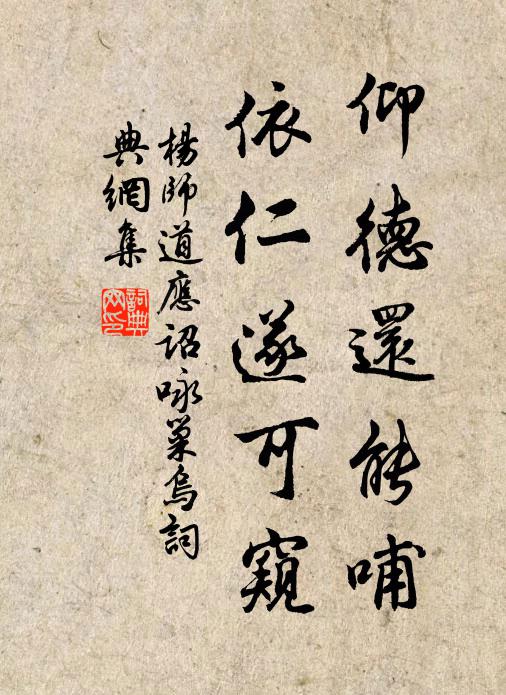 仰德還能哺
依仁遂可窺
楊師道應詔咏巢烏詞
典網集
詞典網印